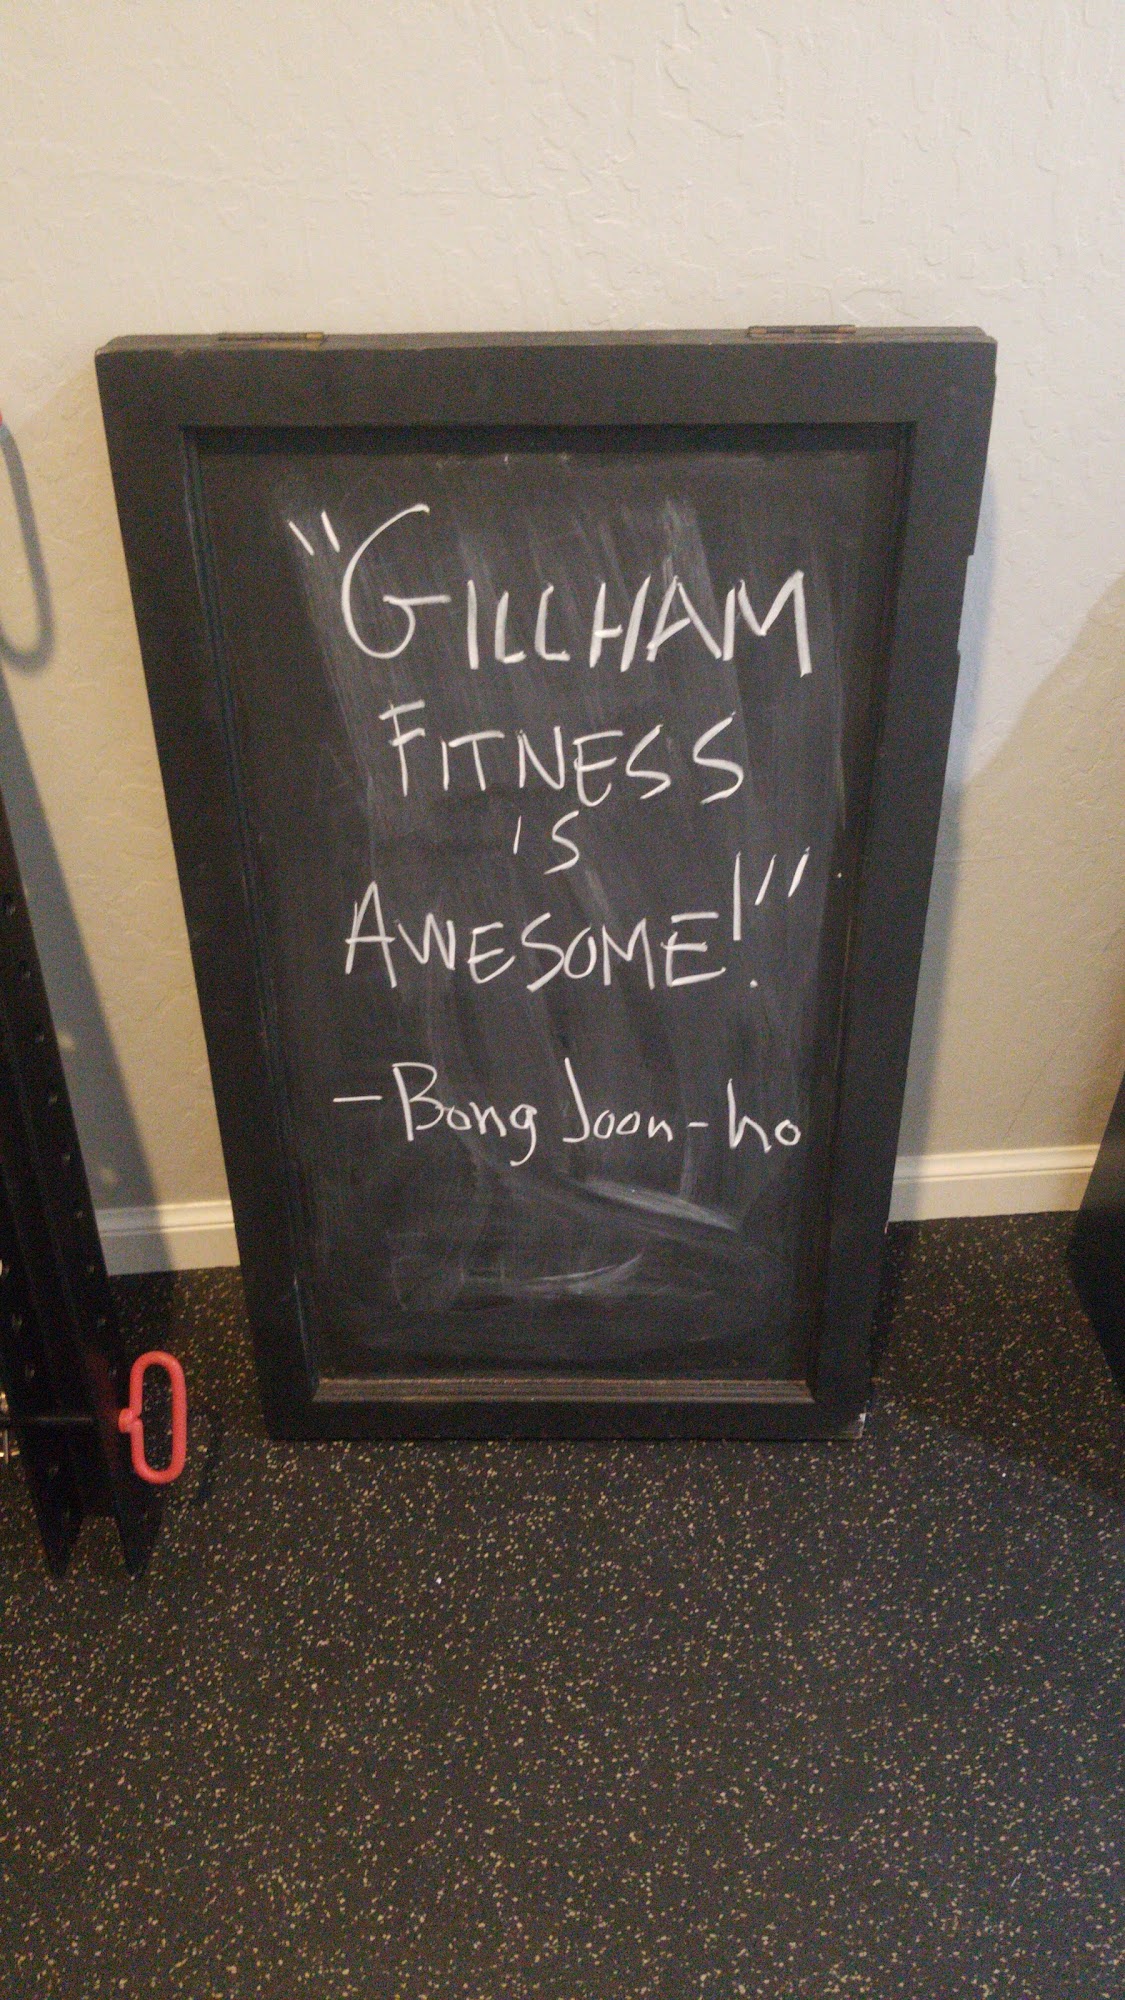 "GILLHAM
FITNESS
IS
AWESOME!"
-Bong Joon-ho